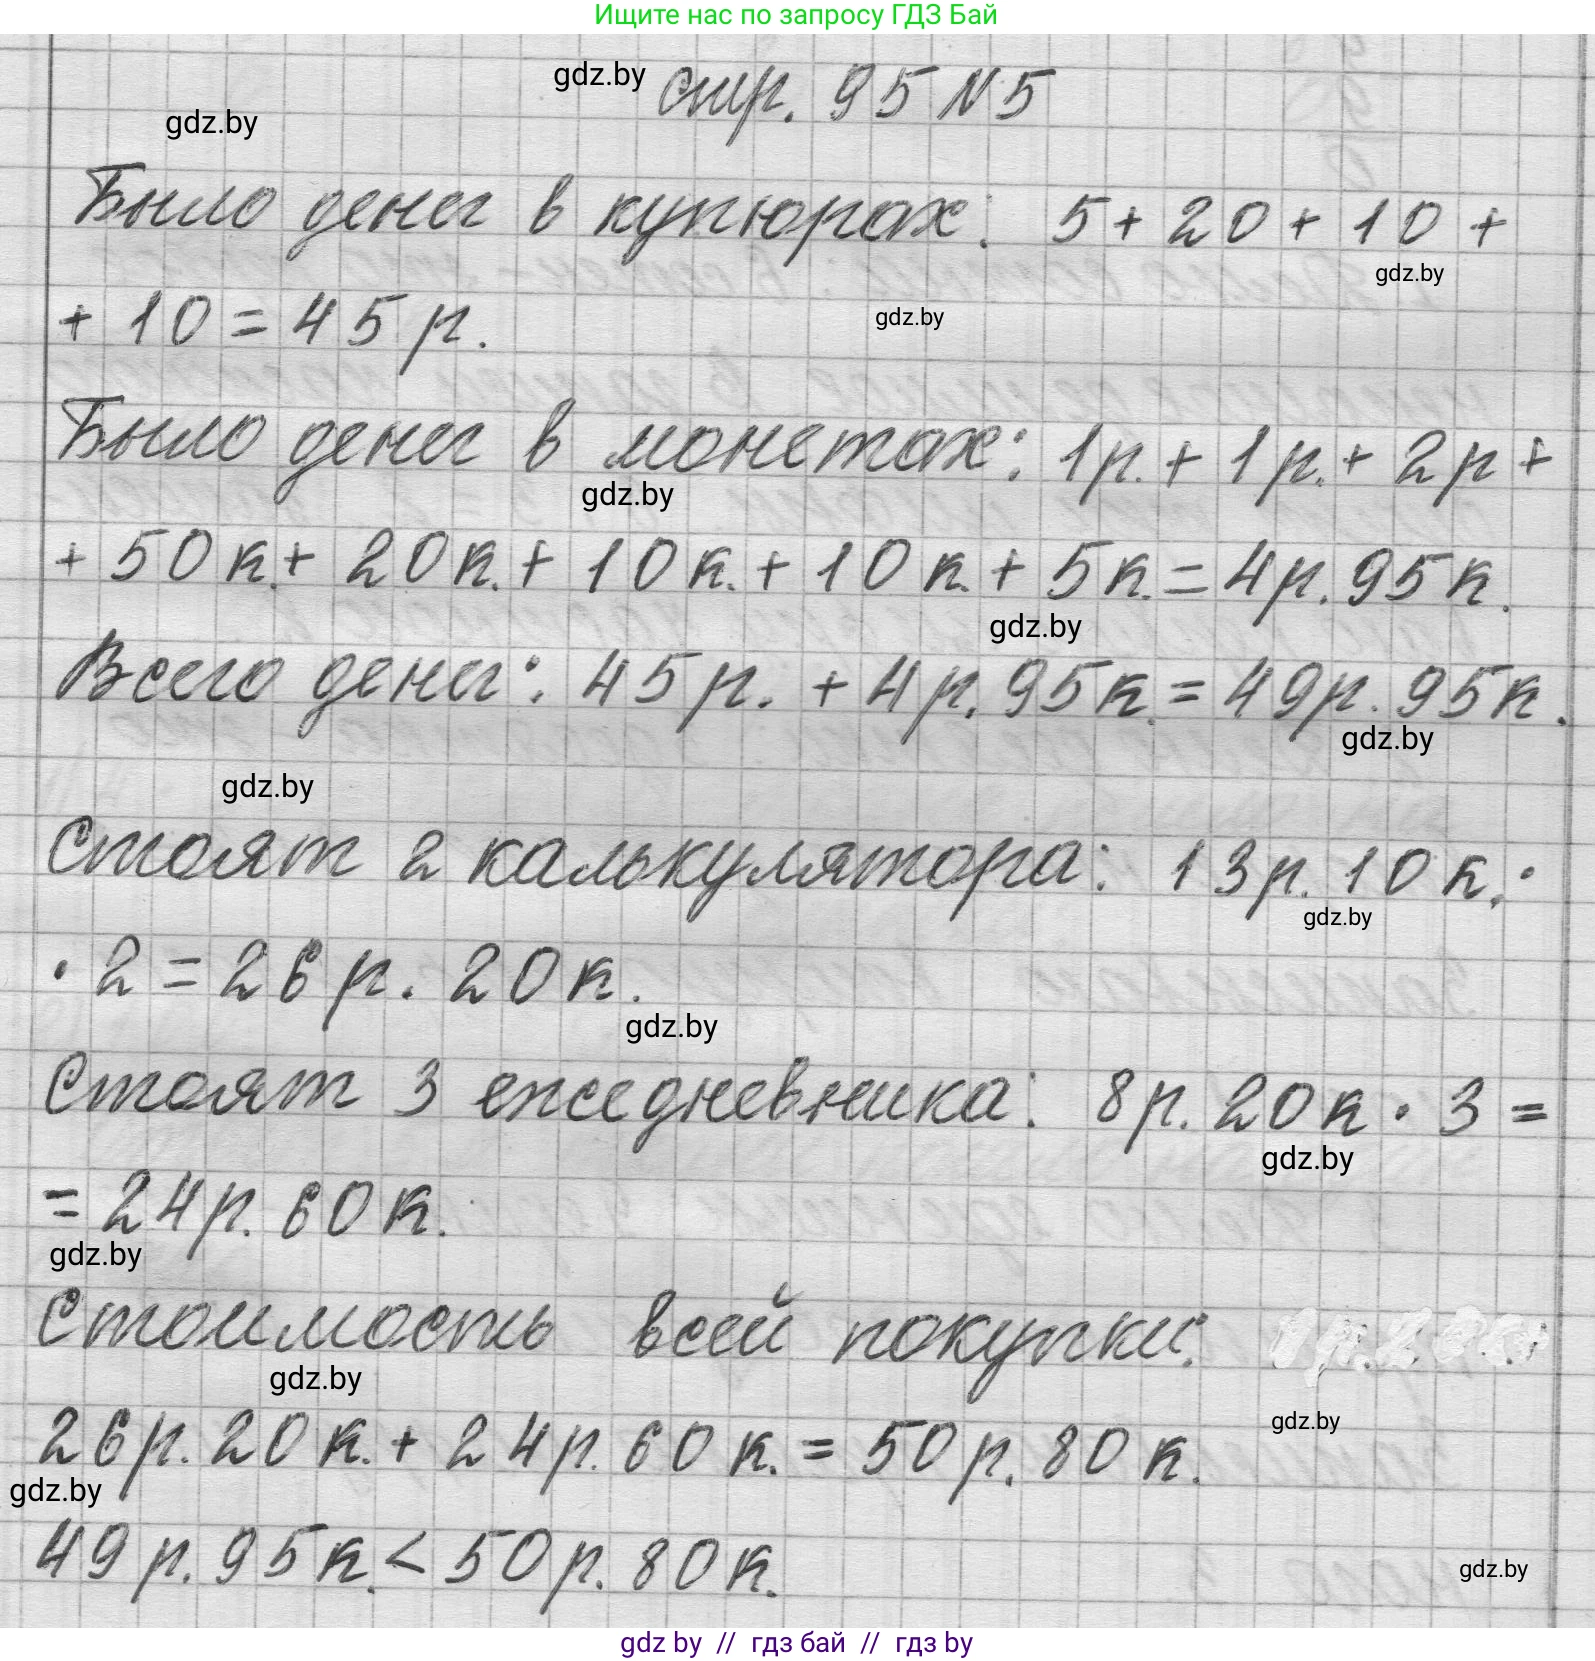 Ищите нас по запросу ГДЗ Бай
gdz.by стр. 95 N 5
gdz.by
Было денег в купюрах: 5 + 20 + 10 +
gdz.by
+ 10 = 45 р.
gdz.by
Было денег в монетах: 1р. + 1р. + 2р +
gdz.by
+ 50 к. + 20 к. + 10 к. + 10 к. + 5 к. = 4р. 95 к.
gdz.by
Всего денег: 45 р. + 4 р. 95 к. = 49р. 95 к.
gdz.by
gdz.by
Стоят 2 калькулятора: 13 р. 10 к. ·
gdz.by
· 2 = 26 р. 20 к.
gdz.by
Стоят 3 ежедневника: 8 р. 20 к · 3 =
gdz.by
= 24 р. 60 к.
gdz.by
Стоимость всей покупки:
gdz.by
gdz.by
26 р. 20 к. + 24 р. 60 к. = 50 р. 80 к.
gdz.by
49 р. 95 к. < 50 р. 80 к.
gdz.by
gdz by // гдз бай // гдз by